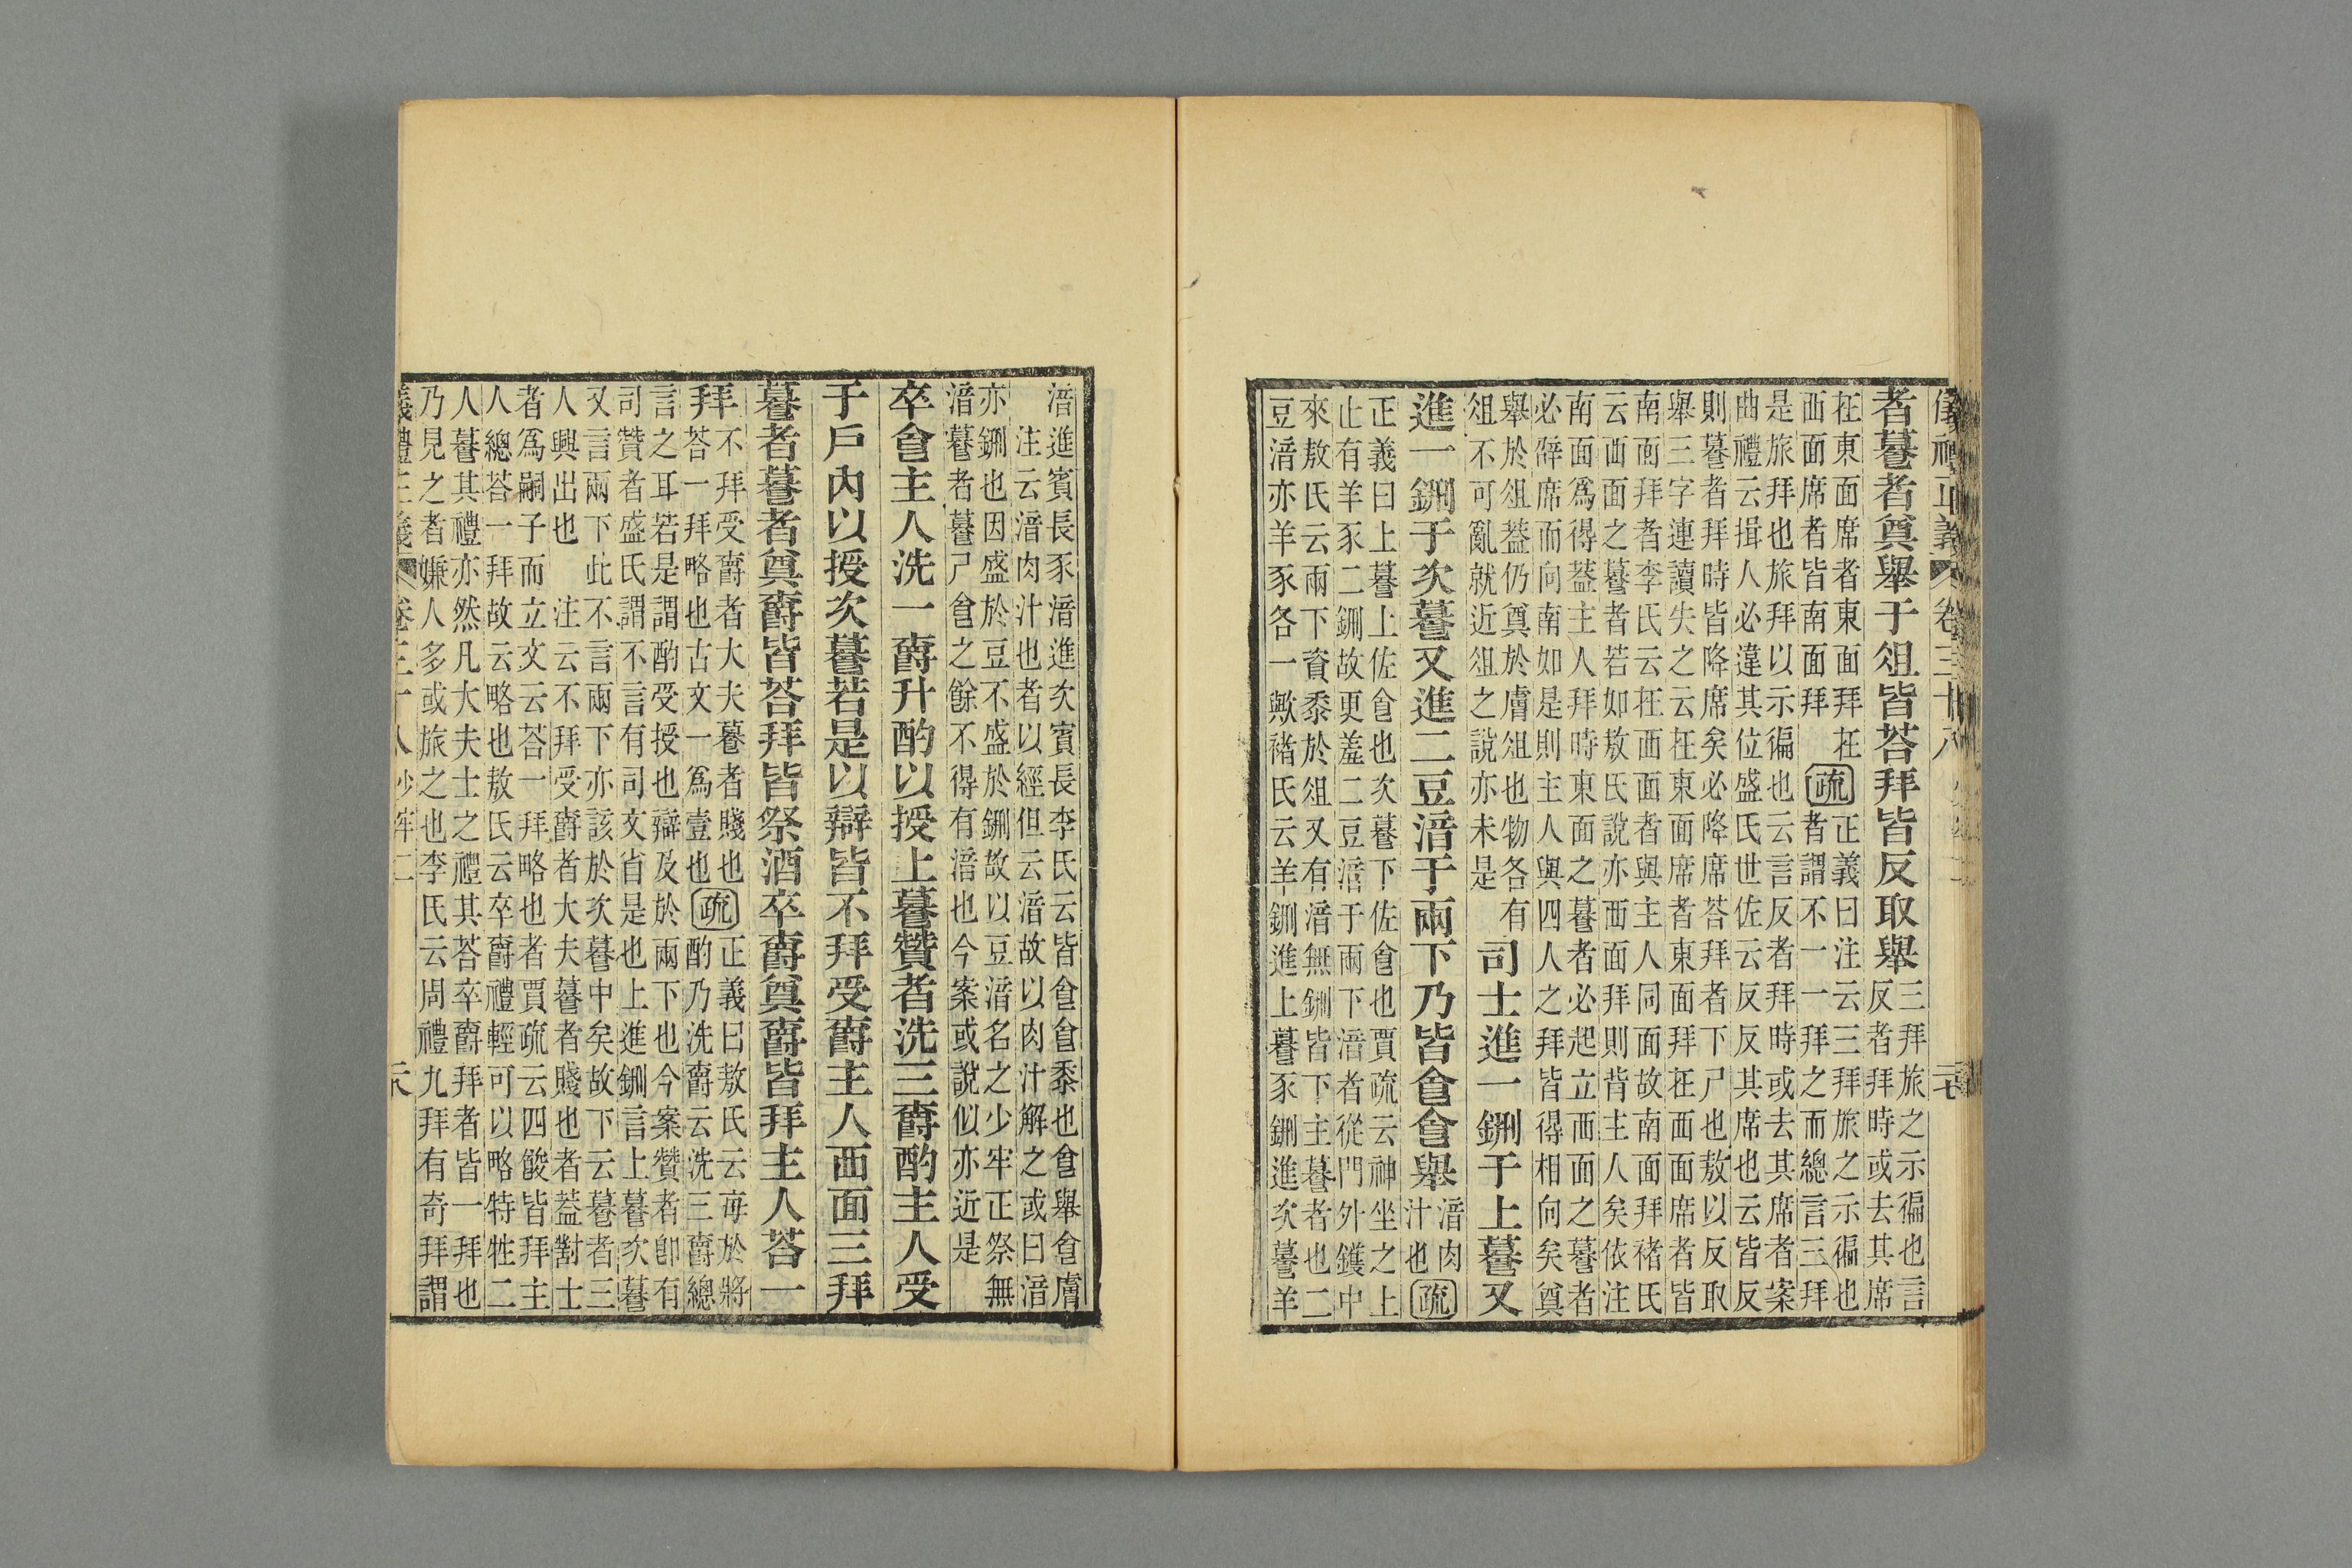 儀禮正義 卷三十八 少牢二 二七
者䭕者奠舉于俎皆荅拜皆反取舉
三拜旅之示徧也言
反者拜時或去其席
在東面席者東面拜在
西面席者皆南面拜
疏
正義曰注云三拜旅之示徧也
者謂不一一拜之而總言三拜
是旅拜也旅拜以示徧也云言反者拜時或去其席者案
曲禮云揖人必違其位盛氏世佐云反反其席也云皆反
則䭕者拜時皆降席矣必降席荅拜者下尸也敖以反取
舉三字連讀失之云在東面席者東面拜在西面席者皆
南面拜者李氏云在西面者與主人同面故南面拜褚氏
云西面之䭕者若如敖氏說亦西面拜則背主人矣依注
南面爲得葢主人拜時東面之䭕者必起立西面之䭕者
必辟席而向南如是則主人與四人之拜皆得相向矣奠
舉於俎葢仍奠於膚俎也物各有
俎不可亂就近俎之說亦未是
司士進一鉶于上䭕又
進一鉶于次䭕又進二豆湆于兩下乃皆食食舉
湆肉
汁也
疏
正義曰上䭕上佐食也次䭕下佐食也賈疏云神坐之上
止有羊豕二鉶故更羞二豆湆于兩下湆者從門外鑊中
來敖氏云兩下資黍於俎又有湆無鉶皆下主䭕者也二
豆湆亦羊豕各一歟褚氏云羊鉶進上䭕豕鉶進次䭕羊
湆進賓長豕湆進次賓長李氏云皆食食黍也食舉食膚
注云湆肉汁也者以經但云湆故以肉汁解之或曰湆
亦鉶也因盛於豆不盛於鉶故以豆湆名之少牢正祭無
湆䭕者䭕尸食之餘不得有湆也今案或說似亦近是
卒食主人洗一爵升酌以授上䭕贊者洗三爵酌主人受
于戶內以授次䭕若是以辯皆不拜受爵主人西面三拜
䭕者䭕者奠爵皆荅拜皆祭酒卒爵奠爵皆拜主人荅一
拜
不拜受爵者大夫䭕者賤也
荅一拜略也古文一爲壹也
疏
正義曰敖氏云每於將
酌乃洗爵云洗三爵總
言之耳若是謂酌受授也辯及於兩下也今案贊者卽有
司贊者盛氏謂不言有司文省是也上進鉶言上䭕次䭕
又言兩下此不言兩下亦該於次䭕中矣故下云䭕者三
人興出也 注云不拜受爵者大夫䭕者賤也者葢對士
者爲嗣子而立文云荅一拜略也者賈疏云四餕皆拜主
人總荅一拜故云略也敖氏云卒爵禮輕可以略特牲二
人䭕其禮亦然凡大夫士之禮其荅卒爵拜者皆一拜也
乃見之者嫌人多或旅之也李氏云周禮九拜有奇拜謂
儀禮正義 卷三十八 少牢二 二八